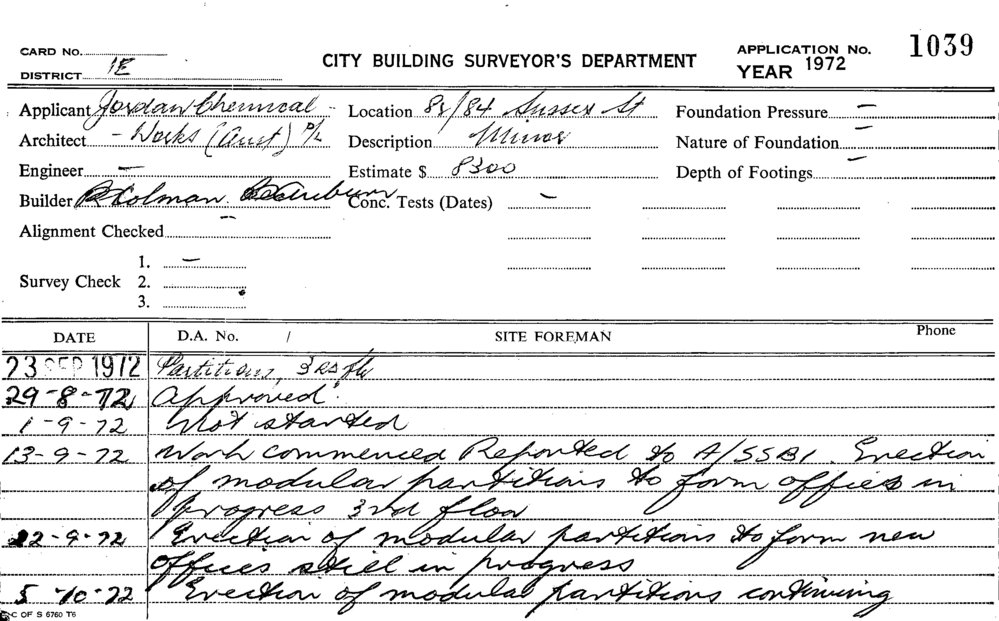 CARD No.
DISTRICT 1E
CITY BUILDING SURVEYOR'S DEPARTMENT
APPLICATION No. 1039
YEAR 1972
Applicant Jordan Chemical -
Architect - Works (Aust) P/L
Engineer —
Builder R Colman.
Alignment Checked —
Survey Check 1. —
2.
3.
Location 82/84 Sussex St
Description Minor
Estimate $ 8300
Conc. Tests (Dates) —
Foundation Pressure —
Nature of Foundation —
Depth of Footings —
DATE D.A. No. / SITE FOREMAN Phone
23 SEP 1972 Partitions, 3rd flr
29-8-72 Approved.
1-9-72 Not started
13-9-72 Work commenced Reported to A/SSBI. Erection
of modular partitions to form offices in
progress 3rd floor
22-9-72 Erection of modular partitions to form new
offices still in progress
5-10-72 Erection of modular partitions continuing
C OF S 6760 T6